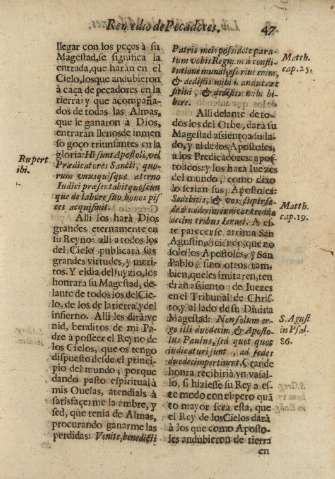 Remedio de Pecadores. 47
llegar con los peces à su
Magestad, se significa la
entrada, que harán en el
Cielo, los que andubieron
à caça de pecadores en la
tierra: y que acompaña-
dos de todas las Almas,
que le ganaron à Dios,
entrarán llenos de inmen
so goço triunfantes en la
gloria: Hi sunt Apostoli, vel
Prædicatores Sancti, quo-
rum unusquisque æterno
Iudici præsentabit quoscun
que de labore suo honor pis
ces acquisivit.
Rupert
ibi.
Alli los hará Dios
grandes eternamente en
su Reyno: alli à todos los
del Cielo publicará sus
grandes virtudes, y meri-
tos. Y el dia del juyzio, los
honrara su Magestad, de-
lante de todos los de Cie-
lo, de los de la tierra, y del
infierno. Alli les dirà ve
nid, benditos de mi Pa-
dre à posseer el Reyno de
los Cielos, que os tengo
dispuesto desde el princi-
pio del mundo; porque
dando pasto espiritual à
mis Ovejas, atendiais à
satisfaçer me la ambre, y
sed, que tenia de Almas,
procurando ganarme las
perdidas: Venite, benedicti
Patris mei possidete para-
tum vobis Regnum à consti-
tutione mundi, esurivi enim,
& dedistis mihi manducare
sitivi, & dedistis mihi bi-
bere.
Math.
cap. 25.
Alli delante de to-
do los del Orbe, dará su
Magestad assiento à su la-
do, y al de los Apostoles,
à los Predicadores apos-
tolicos: y los hará Juezes
del mundo, como dixo
lo serian sus Apostoles:
Sedebitis, & vos, super se-
des iudicantes duode
decim tribus Israel. A es-
te parecer se arrima San
Agustin, diciendo, que no
solo los Apostoles, y San
Pablo, sino otros tam-
bien, que les imitaren, ten
dran assiento de Juezes
en el Tribunal de Chris-
to, y al lado de su Divina
Magestad: Non solum er-
go illi duodecim, & Aposto-
lus Paulus, sed quot quot
iudicaturi sunt, ad sedes
duodecim pertinent. Grande
honra recibiria un vasal-
lo, si hiziesse su Rey a es-
te modo con el: pero quã
to mayor sera esta, que
el Rey de los Cielos dará
à los que como Aposto-
les anduvieron de tierra
Math.
cap. 19.
S. Agust
in Psal.
86.
en